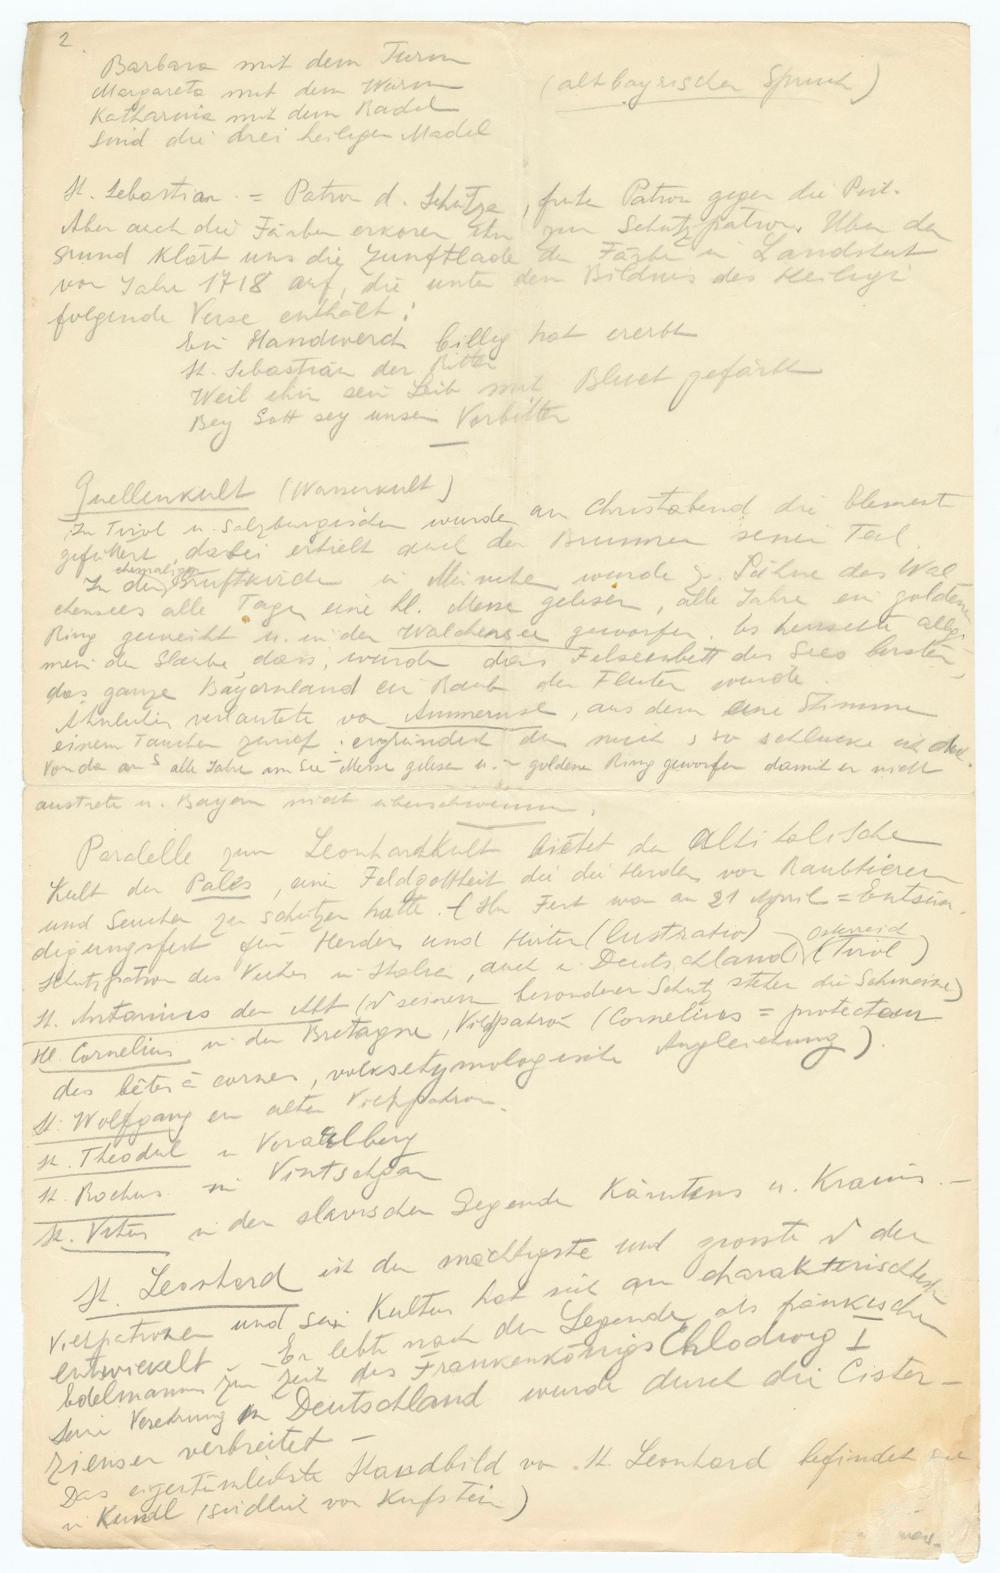 2.
Barbara mit dem Turm
Margareta mit dem Wurm
Katharina mit dem Radel
sind die drei heiligen Madel
(altbayrischer Spruch)
St. Sebastian = Patron d. Schütze, Patron gegen die Pest.
Aber auch die Färber erkoren ihn zum Schutzpatron. Über den
Grund klärt uns die Zunftlade der Färber in Landshut
vom Jahre 1718 auf, die unter dem Bildnis des Heiligen
folgende Verse enthält:
Ein Handwerch billig hat ererbt
St. Sebastian der Ritter
Weil ihm sein Leib mit Bluet gefärbt
Bey Gott sey unser Vorbitter
Quellenkult (Wasserkult)
In Tirol u. Salzburgischen wurde am Christabend die Element
gefüttert, dabei erhielt auch der Brunnen seinen Teil.
In der ehemaligen Gruftkirche in München wurde z. Sühne des Wal
chensees alle Tage eine hl. Messe gelesen, alle Jahre ein goldener
Ring geweiht u. in den Walchensee geworfen. Es herrschte allge-
mein der Glaube, dass, würde das Felsenbett des Sees bersten,
das ganze Bayernland ein Raub der Fluten würde.
Ähnliches verlautete vom Ammersee, aus dem eine Stimme
einem Taucher zurief: ergründest du mich, so schlucke ich dich.
Von da an alle Jahre am See Messe gelesen u. goldene Ring geworfen damit er nicht
austrete u. Bayern nicht überschwemme.
Paralelle zum Leonhardkult bietet der altitalische
Kult der Pales, eine Feldgottheit die die Herden vor Raubtieren
und Seuchen zu schützen hatte. (Ihr Fest war am 21 April = Entsün-
digungsfest für Herden und Hirten (lustratio)
Schutzpatron des Viehes in Italien, auch in Deutschland, Österreich (Tirol)
St. Antonius der Abt (seinem besonderen Schutz stehen die Schweine)
Hl. Cornelius in der Bretagne, Viehpatron (Cornelius = protecteur
des bêtes à cornes, volksetymologische Angleichung).
St. Wolfgang ein alter Viehpatron.
St. Theodul in Vorarlberg
St. Rochus im Vintschgau
St. Vitus in den slavischen Gegenden Kärntens u. Krains. –
St. Leonhard ist der mächtigste und grösste der
Viehpatrone und sein Kultus hat sich am charakteristischsten
entwickelt. – Er lebte nach der Legende als fränkischer
Edelmann zur Zeit des Frankenkönigs Chlodwig I
Seine Verehrung in Deutschland wurde durch die Cister-
zienser verbreitet –
Das eigentümlichste Standbild von St. Leonhard befindet sich
in Kundl (südlich von Kufstein)